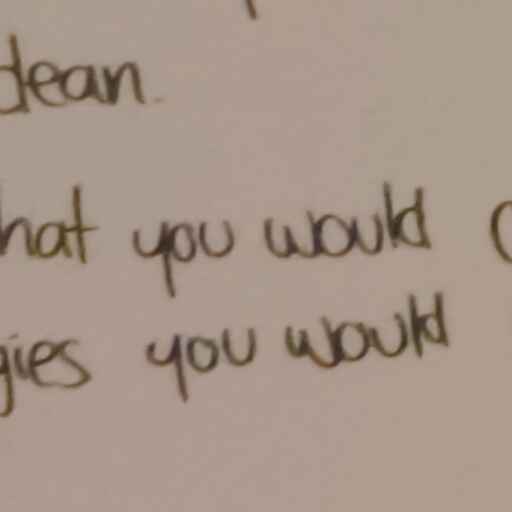 clean.
hat you would
gies you would